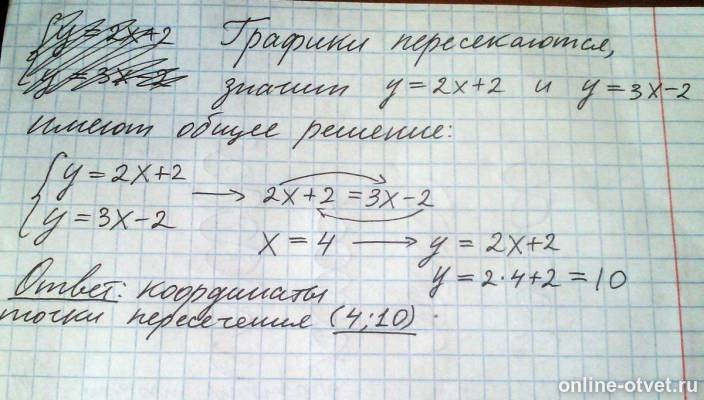 y = 2x+2 Графики пересекаются,
y = 3x-2 значит y = 2x+2 и y = 3x-2
имеют общее решение:
{ y = 2x+2 → 2x+2 = 3x-2
{ y = 3x-2
x = 4 → y = 2x+2
y = 2·4+2 = 10
Ответ: координаты
точки пересечения (4;10).
online-otvet.ru